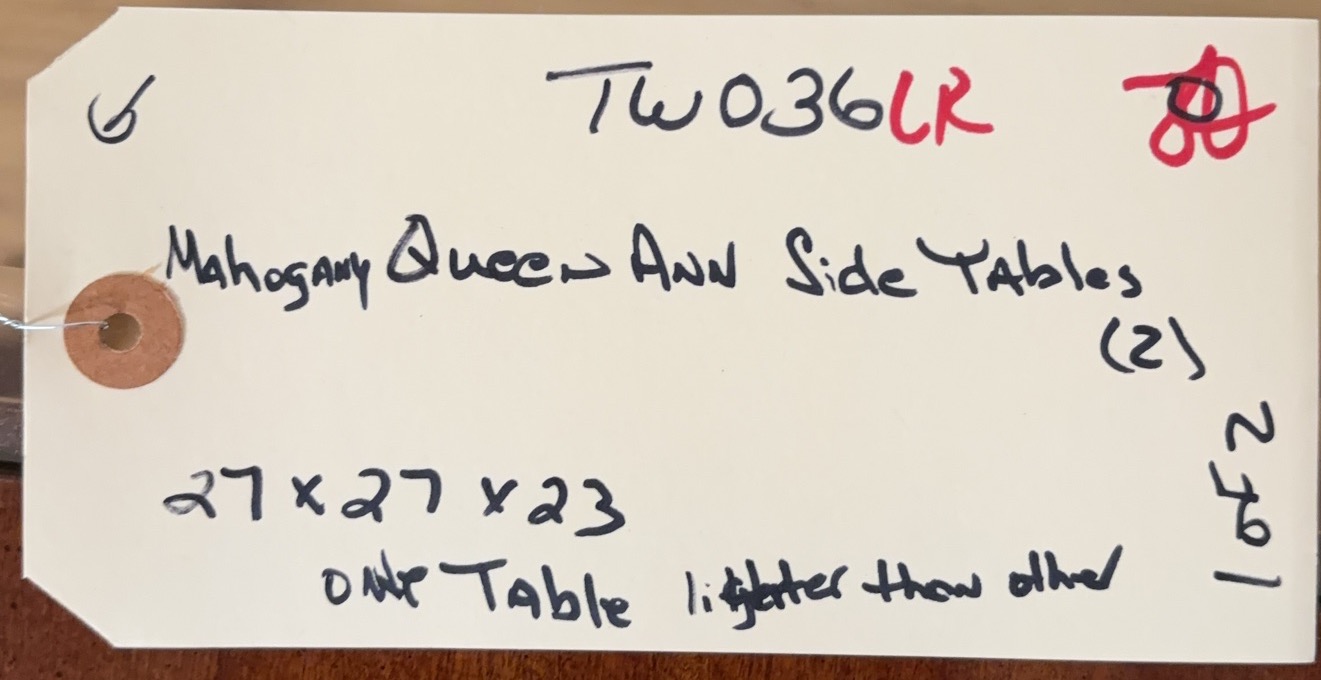 6
TW036LR
Mahogany Queen Ann Side Tables
(2)
27 x 27 x 23
one Table lighter than other